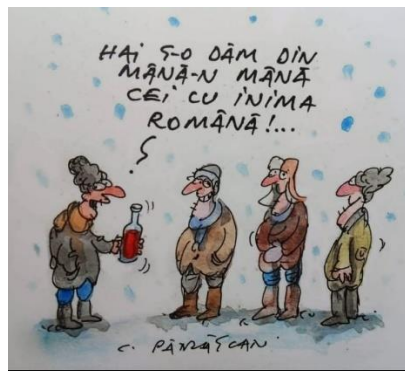 HAI S-O DĂM DIN
MÂNĂ-N MÂNĂ
CEI CU INIMA
ROMÂNĂ!...
C. PÂRÂȘCAN